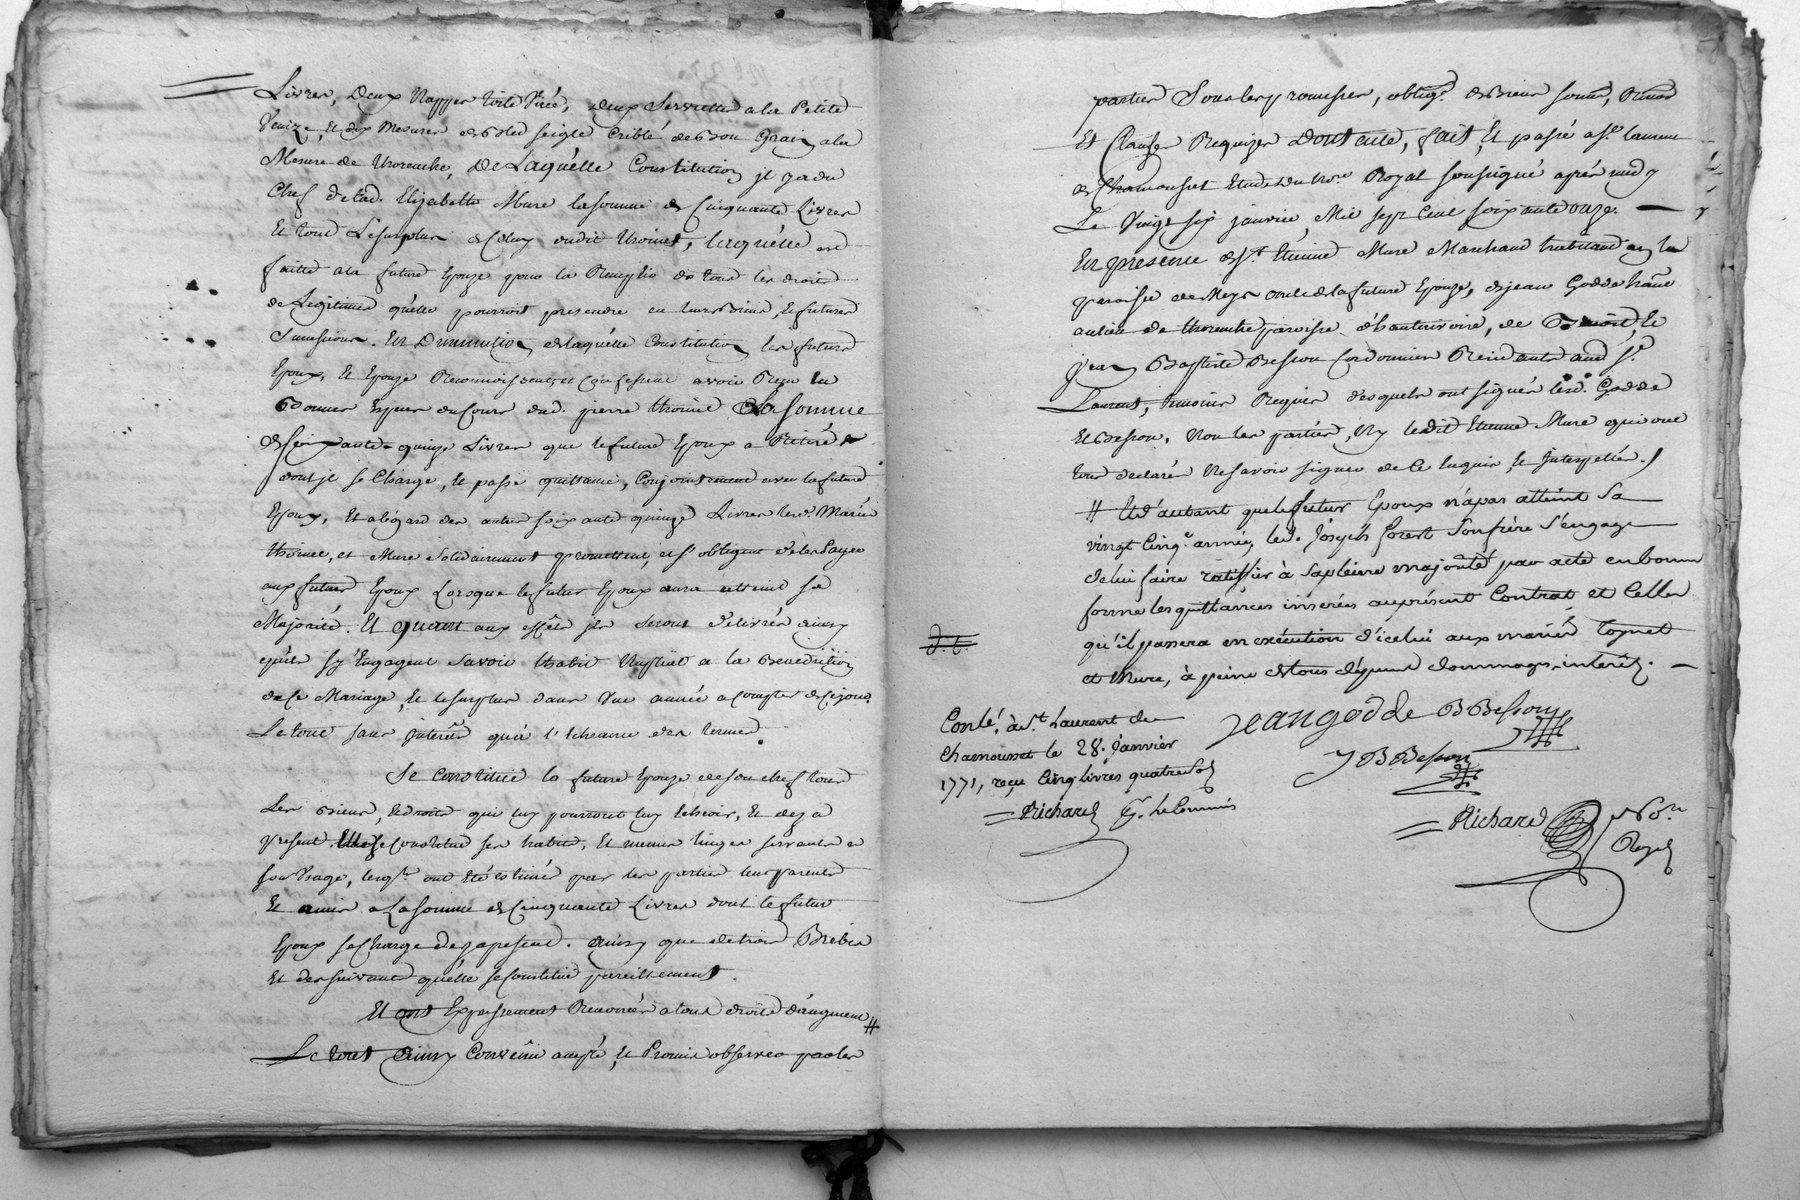 Livres, deux Nappes toile Virée, deux Serviettes a la Petite
Venize, et dix Mesures de bled seigle criblé de bon Grain a la
Mesure de thorenche, de Laquélle Constitution jl y a du
Chef de lad. Elizabette Mure la somme de Cinquante Livres
Et tout Le surplus de Celuy dudit thoinet, laquélle est
faitte a la future Epouze pour la Remplir de tous les droits
de Legitimes qu'elle pourroit pretendre en leurs biens, et futures
Successions. En Diminution de laquélle Constitution les futurs
Epoux, et Epouze Reconnoissent et Confessent avoir Reçu en
bonnes Especes du Cours dud. pierre thoinet la somme
de soixante quinze Livres que le futur Epoux a Retiré
dont jl se Charge, et passe quittance, Conjointement avec la future
Epouze, Et a légard des autres soixante quinze Livres lesd. Mariés
thoinet, et Mure solidairement promettent, et s'obligent de les Payer
aux futurs Epoux Lorsque le futur Epoux aura atteint sa
Majorité. Et quant aux effets jls seront délivrés ainsy
qu'ils s'y Engagent Savoir l'habit Nuptial a la Benediction
de Ce Mariage, et le surplus dans Une année a Compter de Ce jour.
Le tout sans jnterêts qu'à l'Echeance des termes.
Se Constitue la future Epouze de son chef tous
Les biens, et droits qui luy pourront luy Echeoir, et deja
present Elle se Constitue ses habits, et menus linges servants a
son Usage, lesq.ls ont été estimés par les parties leurs parents
Et amis a La somme de Cinquante Livres dont le futur
Epoux se Charge deja present. ainsy que de trois Brebis
Et des suivants qu'elle se Constitue pareillement.
Et ont Expressement Renoncés a tous droits d'augment #
Le tout ainsy Convenû accepté, et Promis observer par les
parties Sous les promesses, oblig.s de biens soum, Renon
Et Clauses Requizes dont acte, fait, Et passé a S.t Laurent
de Chamousset Etude du No.re Royal soussigné après midy
Le Vingt six janvier, Mil sept Cent soixante onze.
En presence de S.r Etienne Mure Marchand habitant en la
paroisse de Meys oncle de la future Epouze, de jean Godde
au lieu de thorenche paroisse d'hauterivoire, de Benoit, Et
jean Baptiste Besson Cordonnier Residants aud S.t
Laurent, temoins Requis desquels ont signés lesd. Godde
Et Besson, Non les parties, Ny ledit Etienne Mure qui ont
tous declarés Ne savoir signer de Ce Enquis, et Interpellés.
# Et d'autant que le futur Epoux n'a pas atteint Sa
vingt Cinq.e année, led. Joseph forest Son frère s'engage
de lui faire ratiffier à Sa pleine majorité par acte en bonne
forme les quittances insérées au présent Contrat et Celles
qu'il passera en exécution d'icelui aux mariés toynet
et Mure, à peine de tous dépens dommages-interêts.
Conlé, à S.t Laurent de
Chamousset le 28. Janvier
1771, reçu Cinq livres quatre Sols
Richard p.r le Commis
jean godde B Besson
J B Besson
Richard No.re
Royal